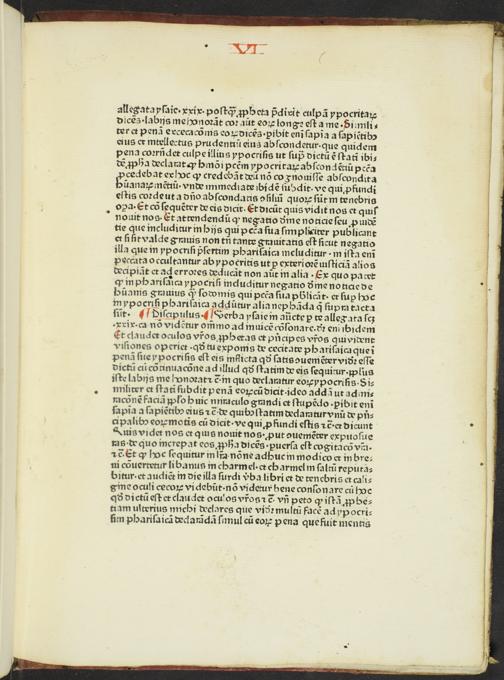 VI
allegata ysaie. xxix. postq̃ ꝓpheta p̃dixit culpã ypocritaꝝ
dicẽs. labijs me honorãt cor aũt eoꝝ longe est a me. Simili-
ter et penã excecacõnis eoꝝ dicẽs. pibit eni sapia a sapiẽtibꝰ
eius et intellectus prudentiũ eius abscondetur. que quidem
pena corrñdet culpe illius ypocrisis ut sup̃ dictũ ẽ statĩ ibi-
dẽ ꝓpha declarat ꝙ hmõi pcẽm ypocritaꝝ abscondẽtiũ pcẽa
ꝓcedebat ex hoc ꝙ credebãt deũ nõ cognouisse abscondita
hũanaꝝ mẽtiũ. vnde immediate ibidẽ subdit. ve qui ꝓfundi
estis corde ut a dño abscondatis cõsiliũ quoꝝ sũt in tenebris
oꝑa. Et cõseq̃nter de eis dicit. Et dicũt quis vidit nos et quis
nouit nos. Et attendendũ ꝙ negatio diuine noticie seu puidẽ
tie que includitur in hijs qui pcẽa sua simpliciter publicant
et si sit valde grauis non tñ tante grauitatis est sicut negatio
illa que in ypocrisi p̃sertim pharisaica includitur. nã ista enĩ
peccata occultantur ab ypocritis ut p exteriorẽ iusticiã alios
decipiãt et ad errores deducãt non aũt in alia. Ex quo patet
ꝙ in pharisaica ypocrisi includitur negatio diuine noticie de
hũanis grauius q̃ sodomis qui pcẽa sua p̃blicãt. et sup hoc
in ypocrisi pharisaica addũtur alia nephãda q̃ supra tacta
sũt. Discipulus. Verba ysaie in aũcte p te allegata scȝ
.xxix. ca. nõ vidẽtur omnino ad inuicẽ cõsonare. dr̃ eni ibidem
Et claudet oculos vr̃os. ꝓphetas et p̃ncipes vr̃os qui vident
visiones operiet. qd̃ tu expõis de cecitate pharisaica que ĩ
penã sue ypocrisis est eis inflicta qd̃ satis ꝯuẽiẽter videt̃ esse
dictũ cũ continuacõne ad illud qd̃ statim de eis sequitur. pplus
iste labijs me honorat ⁊c̃ in quo declaratur eoꝝ ypocrisis. Si-
militer et statĩ subdit penã eoꝝ cũ dicit. ideo addã ut admi-
racõnẽ faciã pplo huic miraculo grandi et stupẽdo. pibit eni
sapia a sapiẽtibꝰ eius ⁊c̃. de quibꝰ statim declaratur vnũ de p̃n
cipalibꝰ eoꝝ motiuis cũ dicit. ve qui ꝓfundi estis ⁊c̃. et dicunt
Quis videt nos et quis nouit nos. put ꝯueniẽter expõsue
ras. de quo increpat eos ꝓpha dicẽs. puersa est cogitacõ vr̃a.
⁊c̃. Et ꝙ hoc sequitur in lr̃a. nõne adhuc in modico et in bre-
ui cõuertetur libanus in charmel. et charmel in saltũ reputa-
bitur. et audiẽt in die illa surdi v̓ba libri et de tenebris et cali-
gine oculi cecoꝝ vidẽbũt. nõ videtur bene consonare cũ hoc
qd̃ dictũ est et claudet oculos vr̃os ⁊ c̃. vñ peto ꝙ istã ꝓphe-
tiam vlterius michi declares que vidr̃ multũ facẽ ad ypocri-
sim pharisaicã declarãdã simul cũ eoꝝ pena que fuit mentis